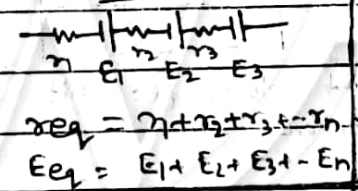 r1 E1 r2 E2 r3 E3
req = r1+r2+r3+--rn
Eeq = E1+ E2+ E3+- En